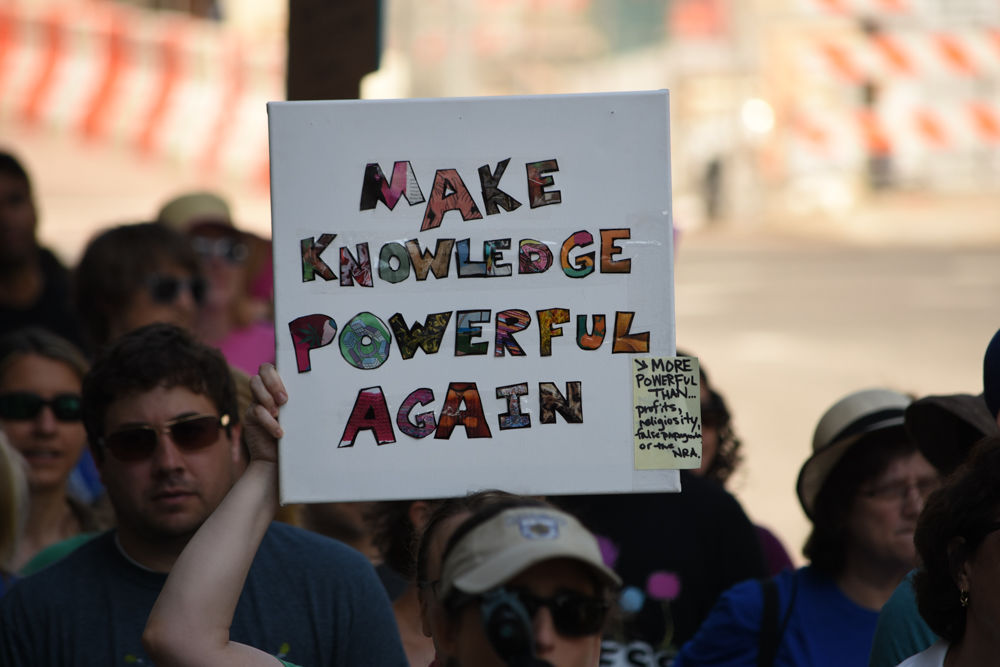 MAKE
KNOWLEDGE
POWERFUL
AGAIN
MORE
POWERFUL
THAN...
profits,
religiosity,
false propaganda
or the
NRA.